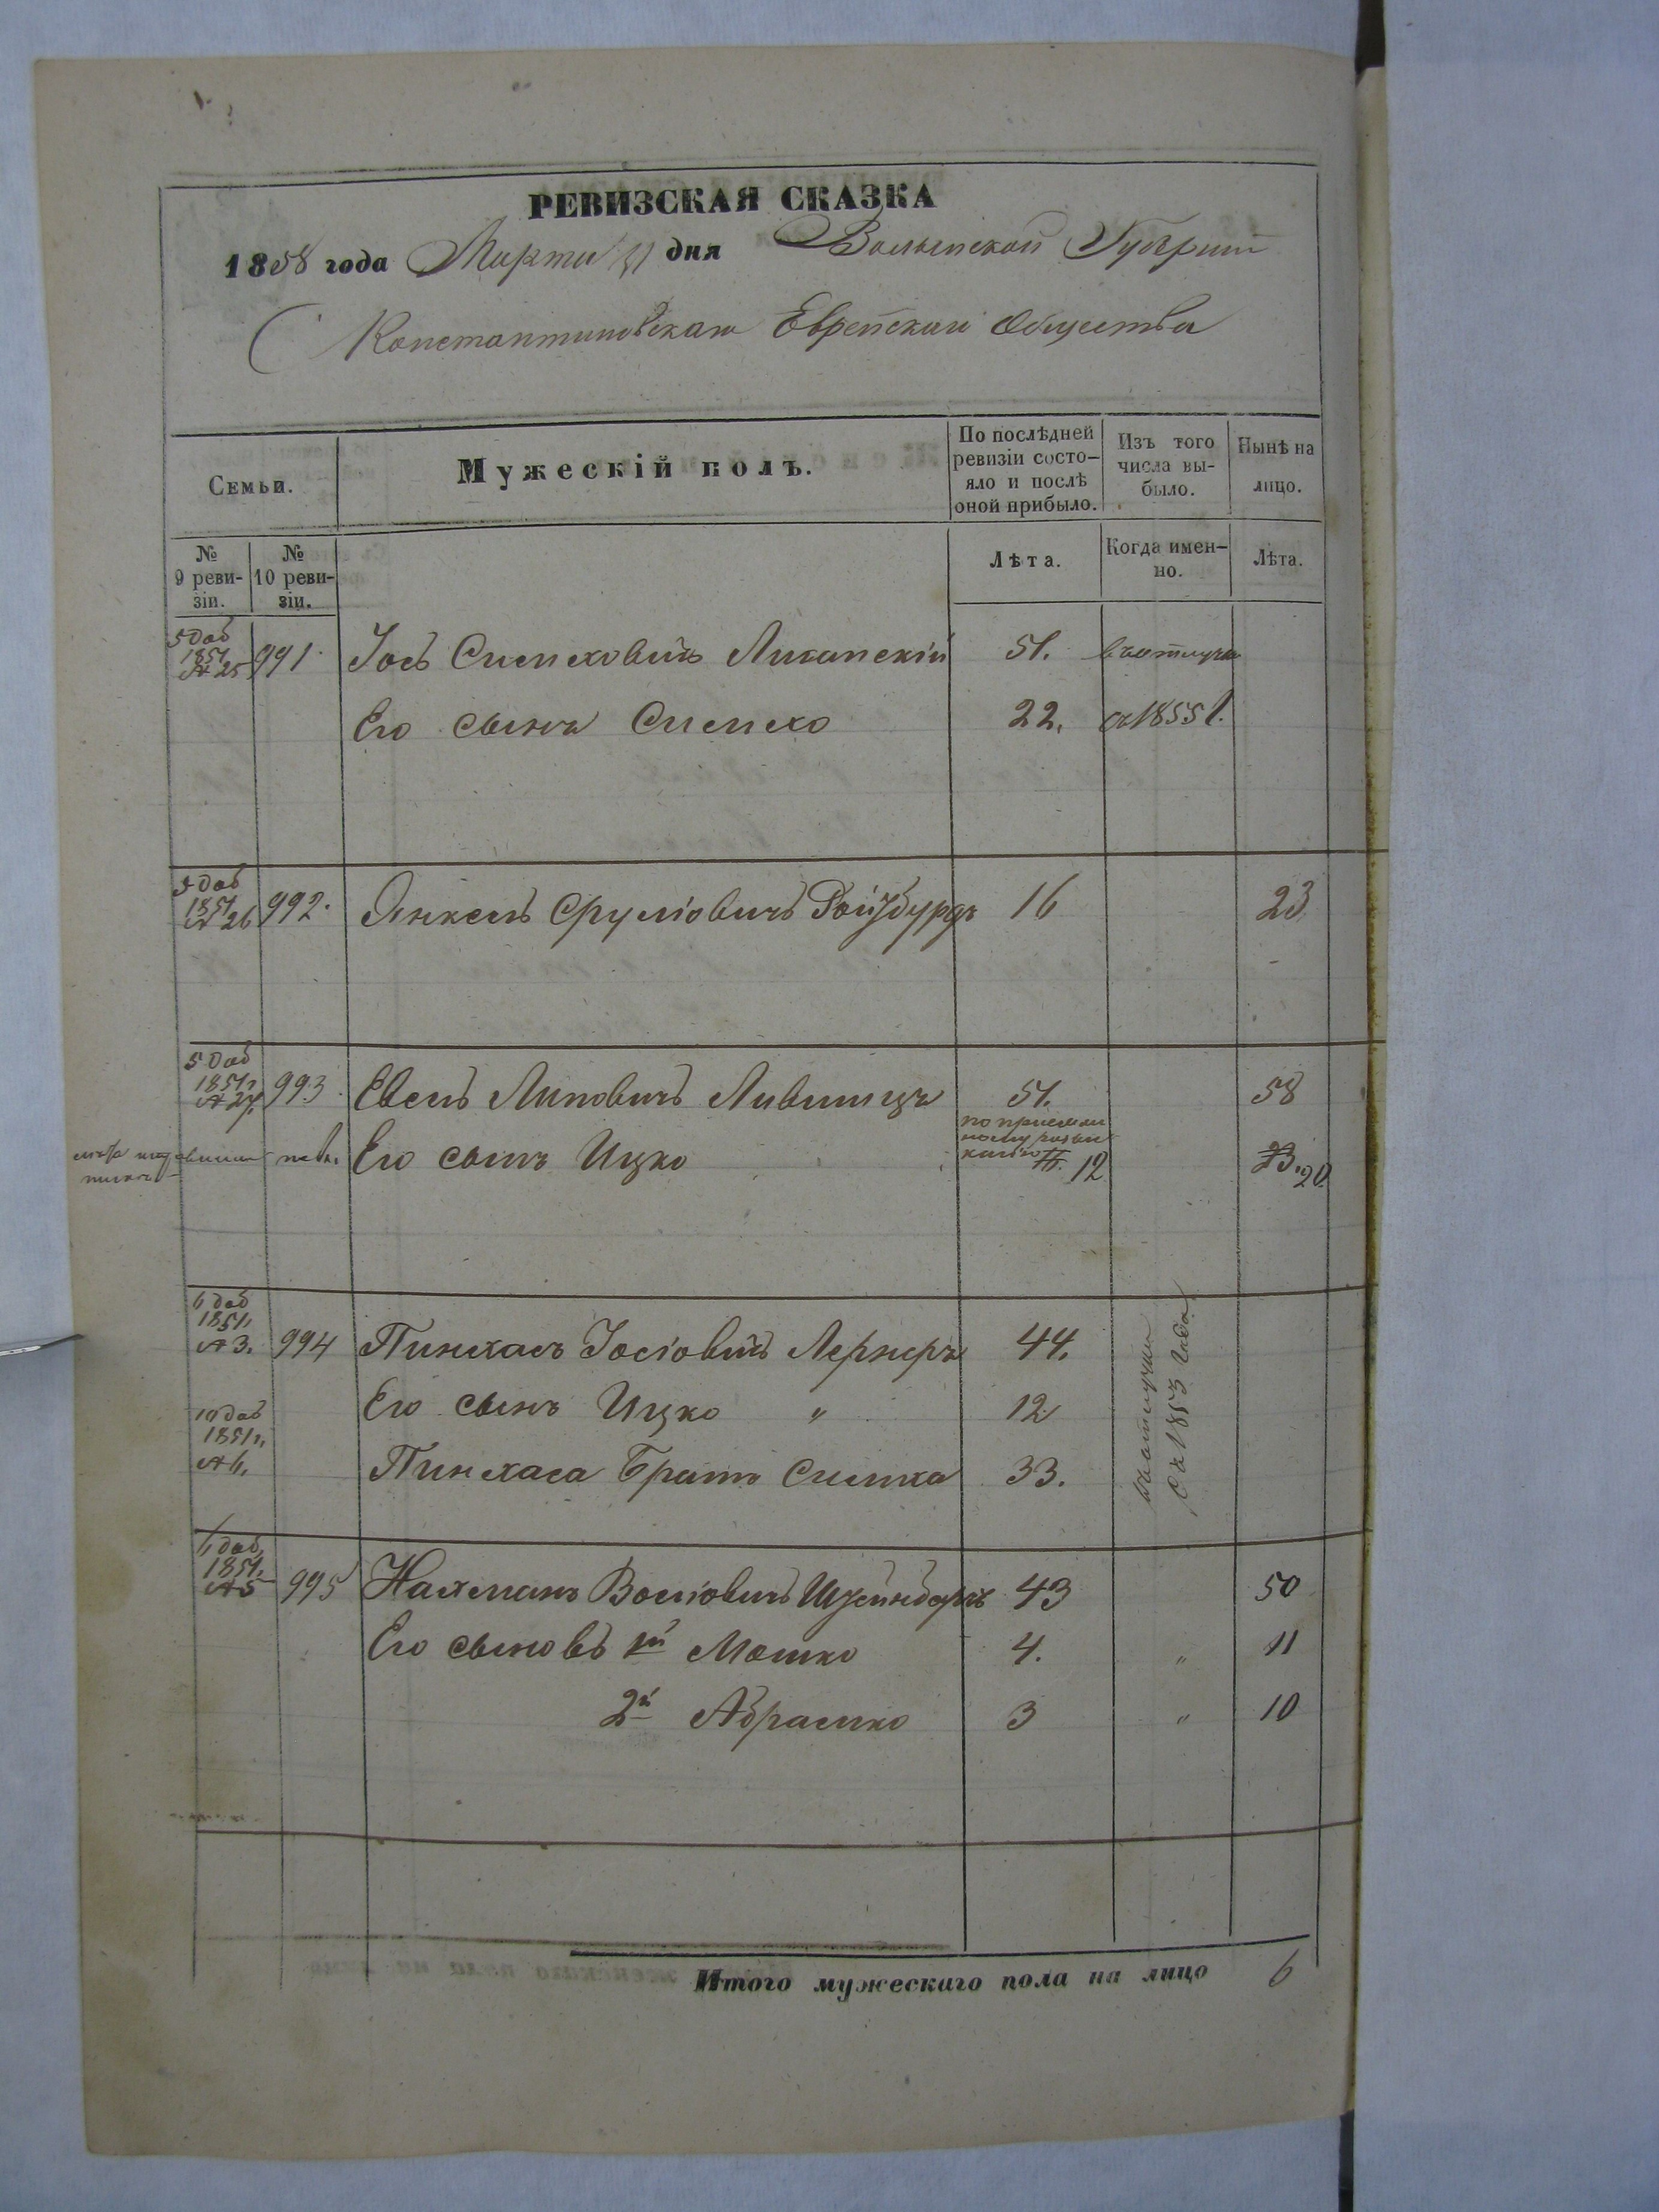 РЕВИЗСКАЯ СКАЗКА
1858 года Марта 31 дня Волынской Губернии
Константиновскаго Еврейскаго Общества
Семьи.
Мужескій полъ.
По послѣдней ревизіи состо-
яло и послѣ
оной прибыло.
Изъ того
числа вы-
было.
Нынѣ на
лицо.
№
9 реви-
зіи.
№
10 реви-
зіи.
Лѣта.
Когда имен-
но.
Лѣта.
5 доб
1851
№ 25 991 Іось Симховичъ 51. въ отлучке
Его сынъ Симхо 22. съ 1855 г.
5 доб
1851
№ 26 992. Янкель Сруліовичъ Ройзбурдъ 16 23
5 доб
1851 г.
993. Евель Липовичъ Лившицъ 51. 58
Его сынъ Ицко 12 20
6 доб
1851
№ 3. 994 Пинхасъ Іосіовичъ Лернеръ 44. въ отлучке
съ 1853 года
Его сынъ Ицко " 12
10 доб
1851 г.
№ 6. Пинхаса братъ Симха 33.
6 доб
1851.
№ 5 995 Нахманъ 43 50
Его сыновъ 1й Мошко 4. " 11
2й Абрамко 3 " 10
Итого мужескаго пола на лицо 6